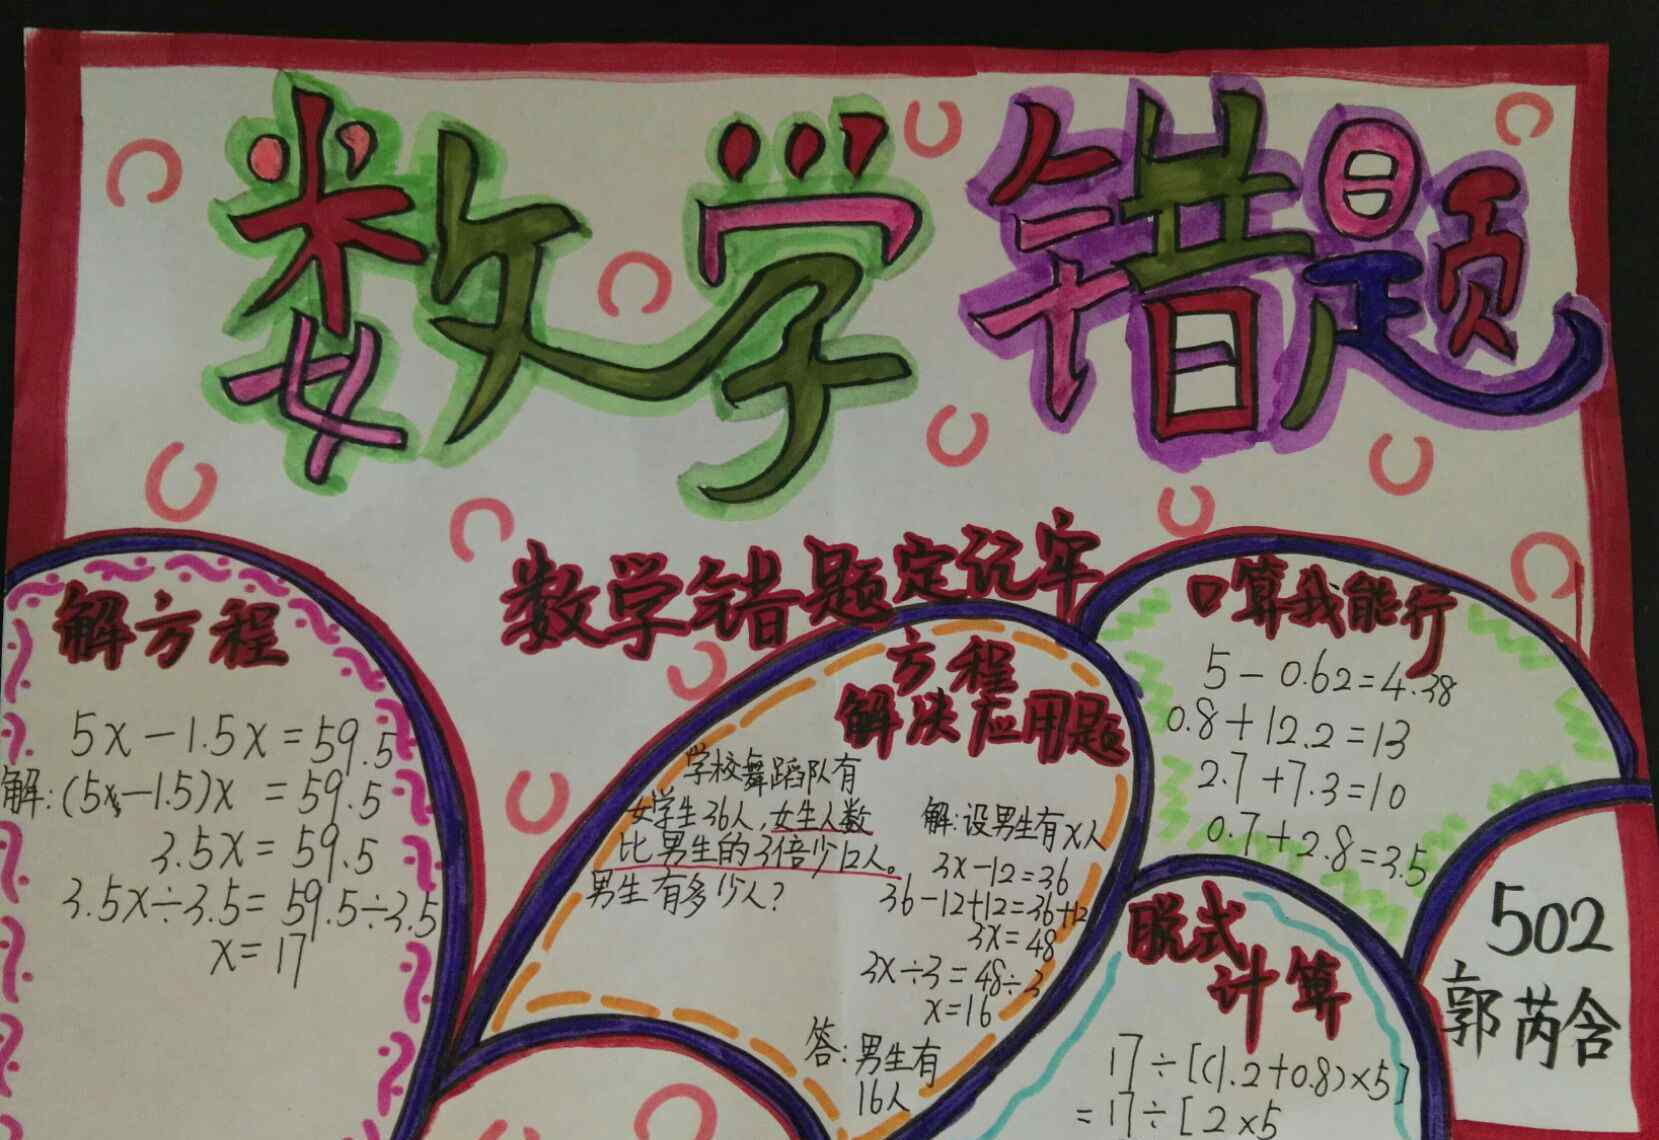 数学错题
数学错题定记牢
解方程
5x-1.5x=59.5
解:(5x-1.5)x =59.5
3.5x=59.5
3.5x÷3.5=59.5÷3.5
x=17
方程
解决应用题
学校舞蹈队有
女学生36人,女生人数
比男生的3倍少12人。
男生有多少人?
解:设男生有x人
3x-12=36
36-12+12=36+12
3x=48
3x÷3=48÷3
x=16
答:男生有
16人
口算我能行
5-0.62=4.38
0.8+12.2=13
2.7+7.3=10
0.7+2.8=3.5
脱式
计算
17÷[(1.2+0.8)×5]
=17÷[2×5
502
郭芮含